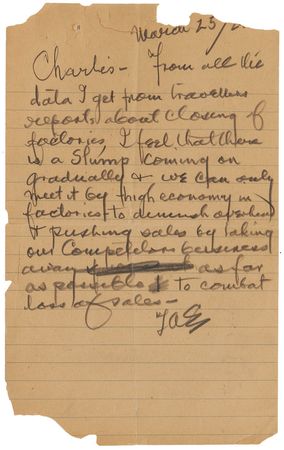 March 23/
Charles— From all the
data I get from travellers
reports about closing of
factories, I feel that there
is a Slump Coming on
gradually & we can only
meet it by high economy in
factories to diminish overhead
& pushing sales by taking
our Competitors business
away as far
as possible to combat
loss of sales—
TAE